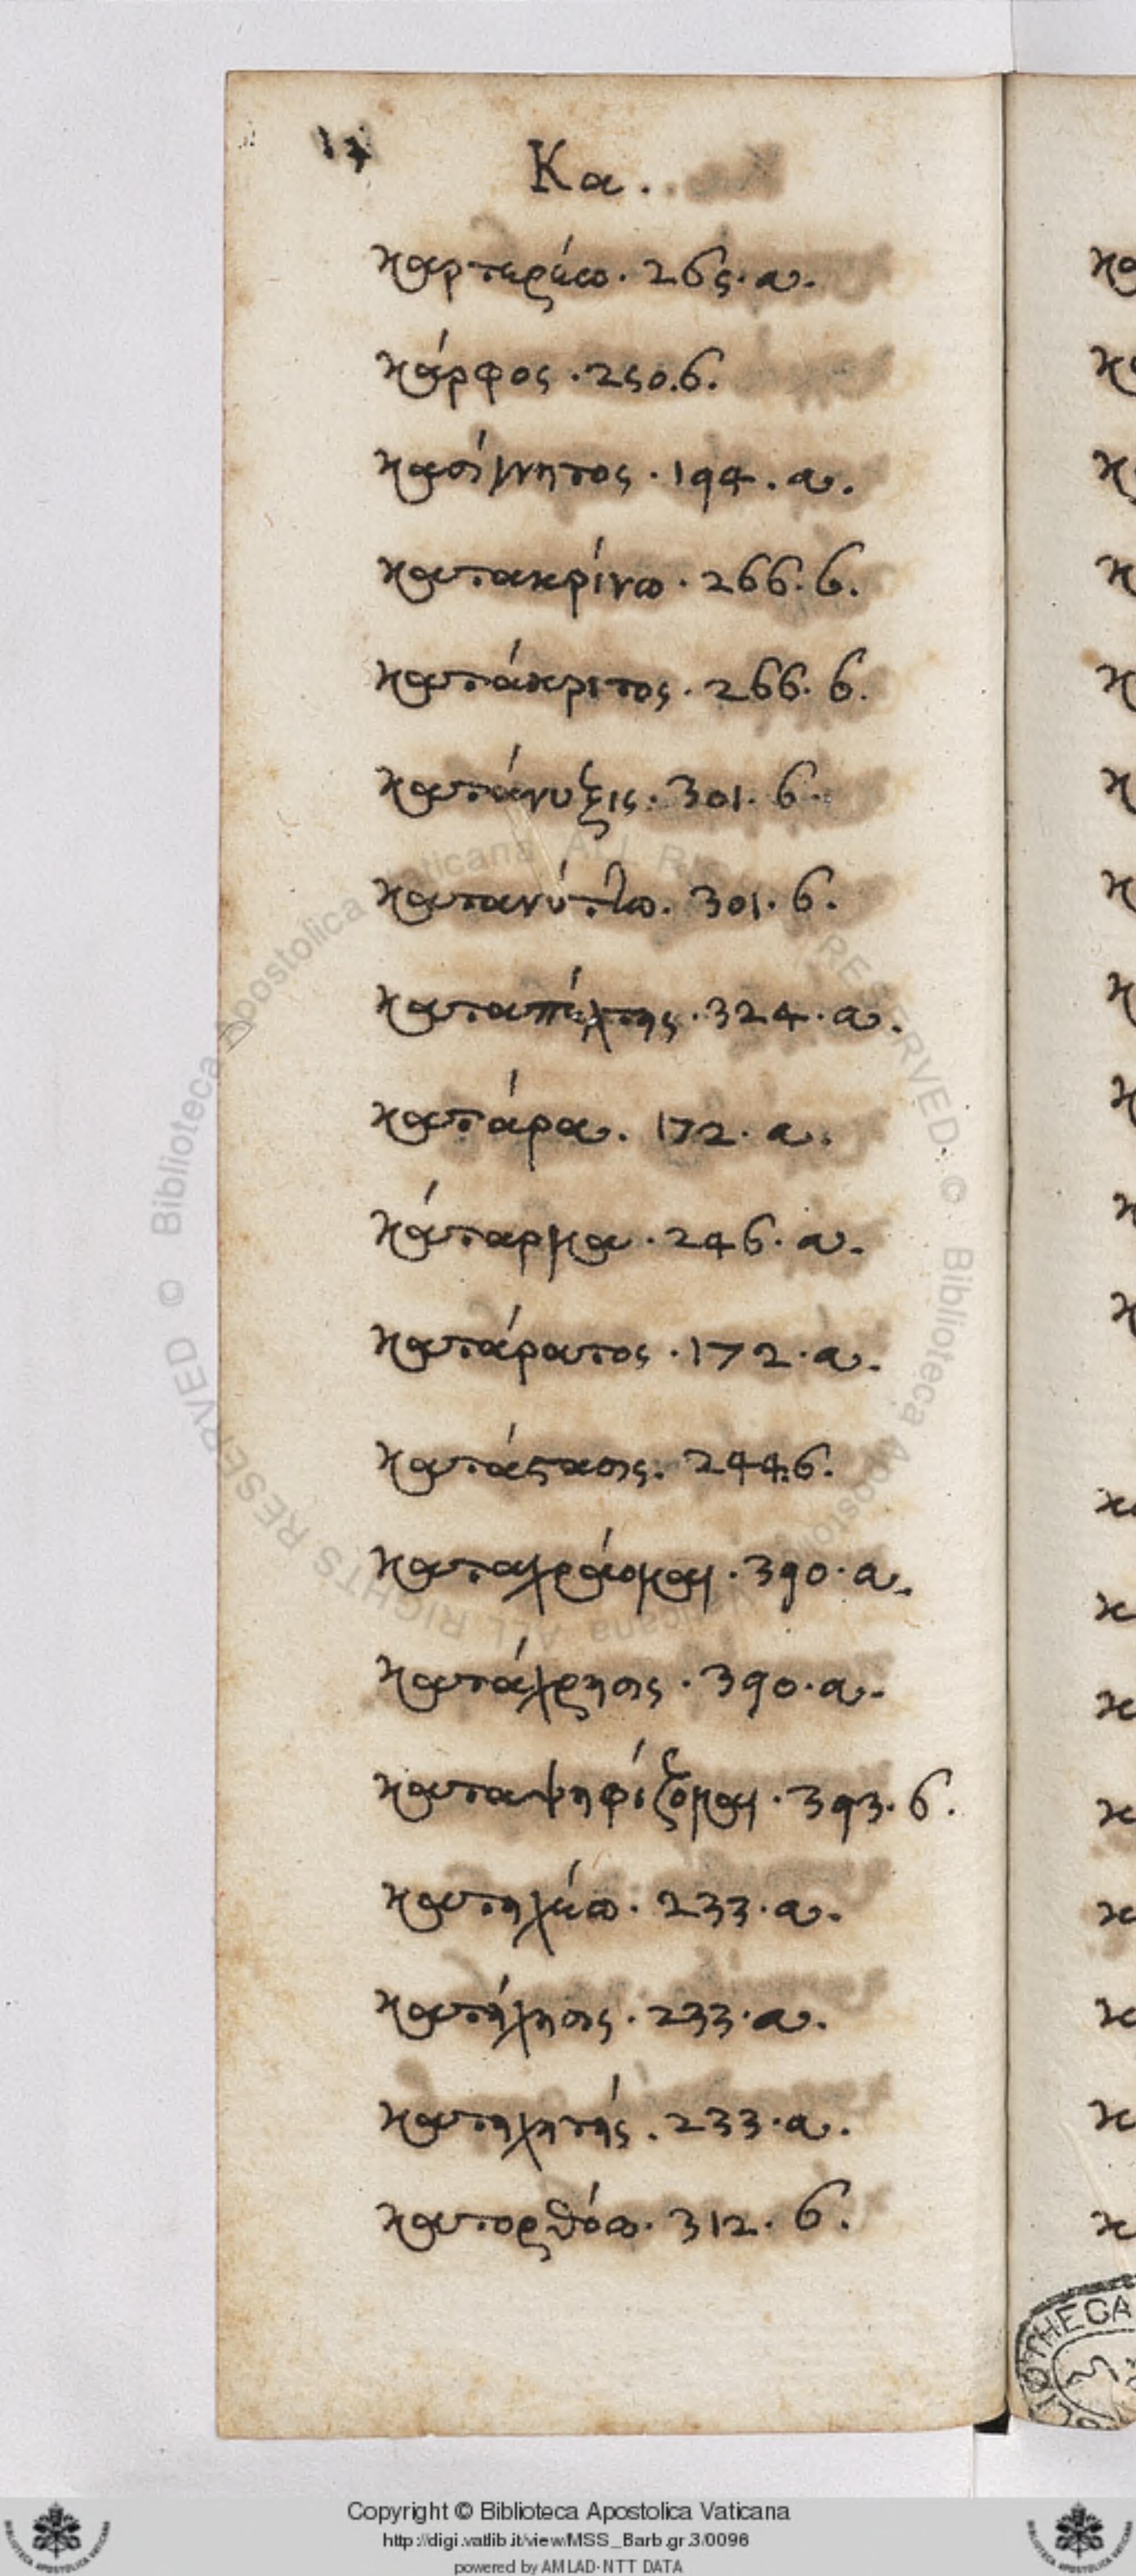 Κα.
καρτερέω · 265 · α.
κάρφος · 250. β.
κασίγνητος · 194 · α.
κατακρίνω · 266 · β.
κατάκριτος · 266 · β.
κατάνυξις · 301 · β.
κατανύττω · 301 · β.
καταπέλτης · 324 · α.
κατάρα · 172 · α.
κάταρμα · 246 · α.
κατάρατος · 172 · α.
κατάϛασις · 244. β.
καταχράομαι · 390 · α.
κατάχρησις · 390 · α.
καταψηφίζομαι · 393 · β.
κατηχέω · 233 · α.
κατήχησις · 233 · α.
κατηχητής · 233 · α.
κατορθόω · 312 · β.
Copyright © Biblioteca Apostolica Vaticana
http://digi.vatlib.it/view/MSS_Barb.gr.3/0096
powered by AMLAD-NTT DATA